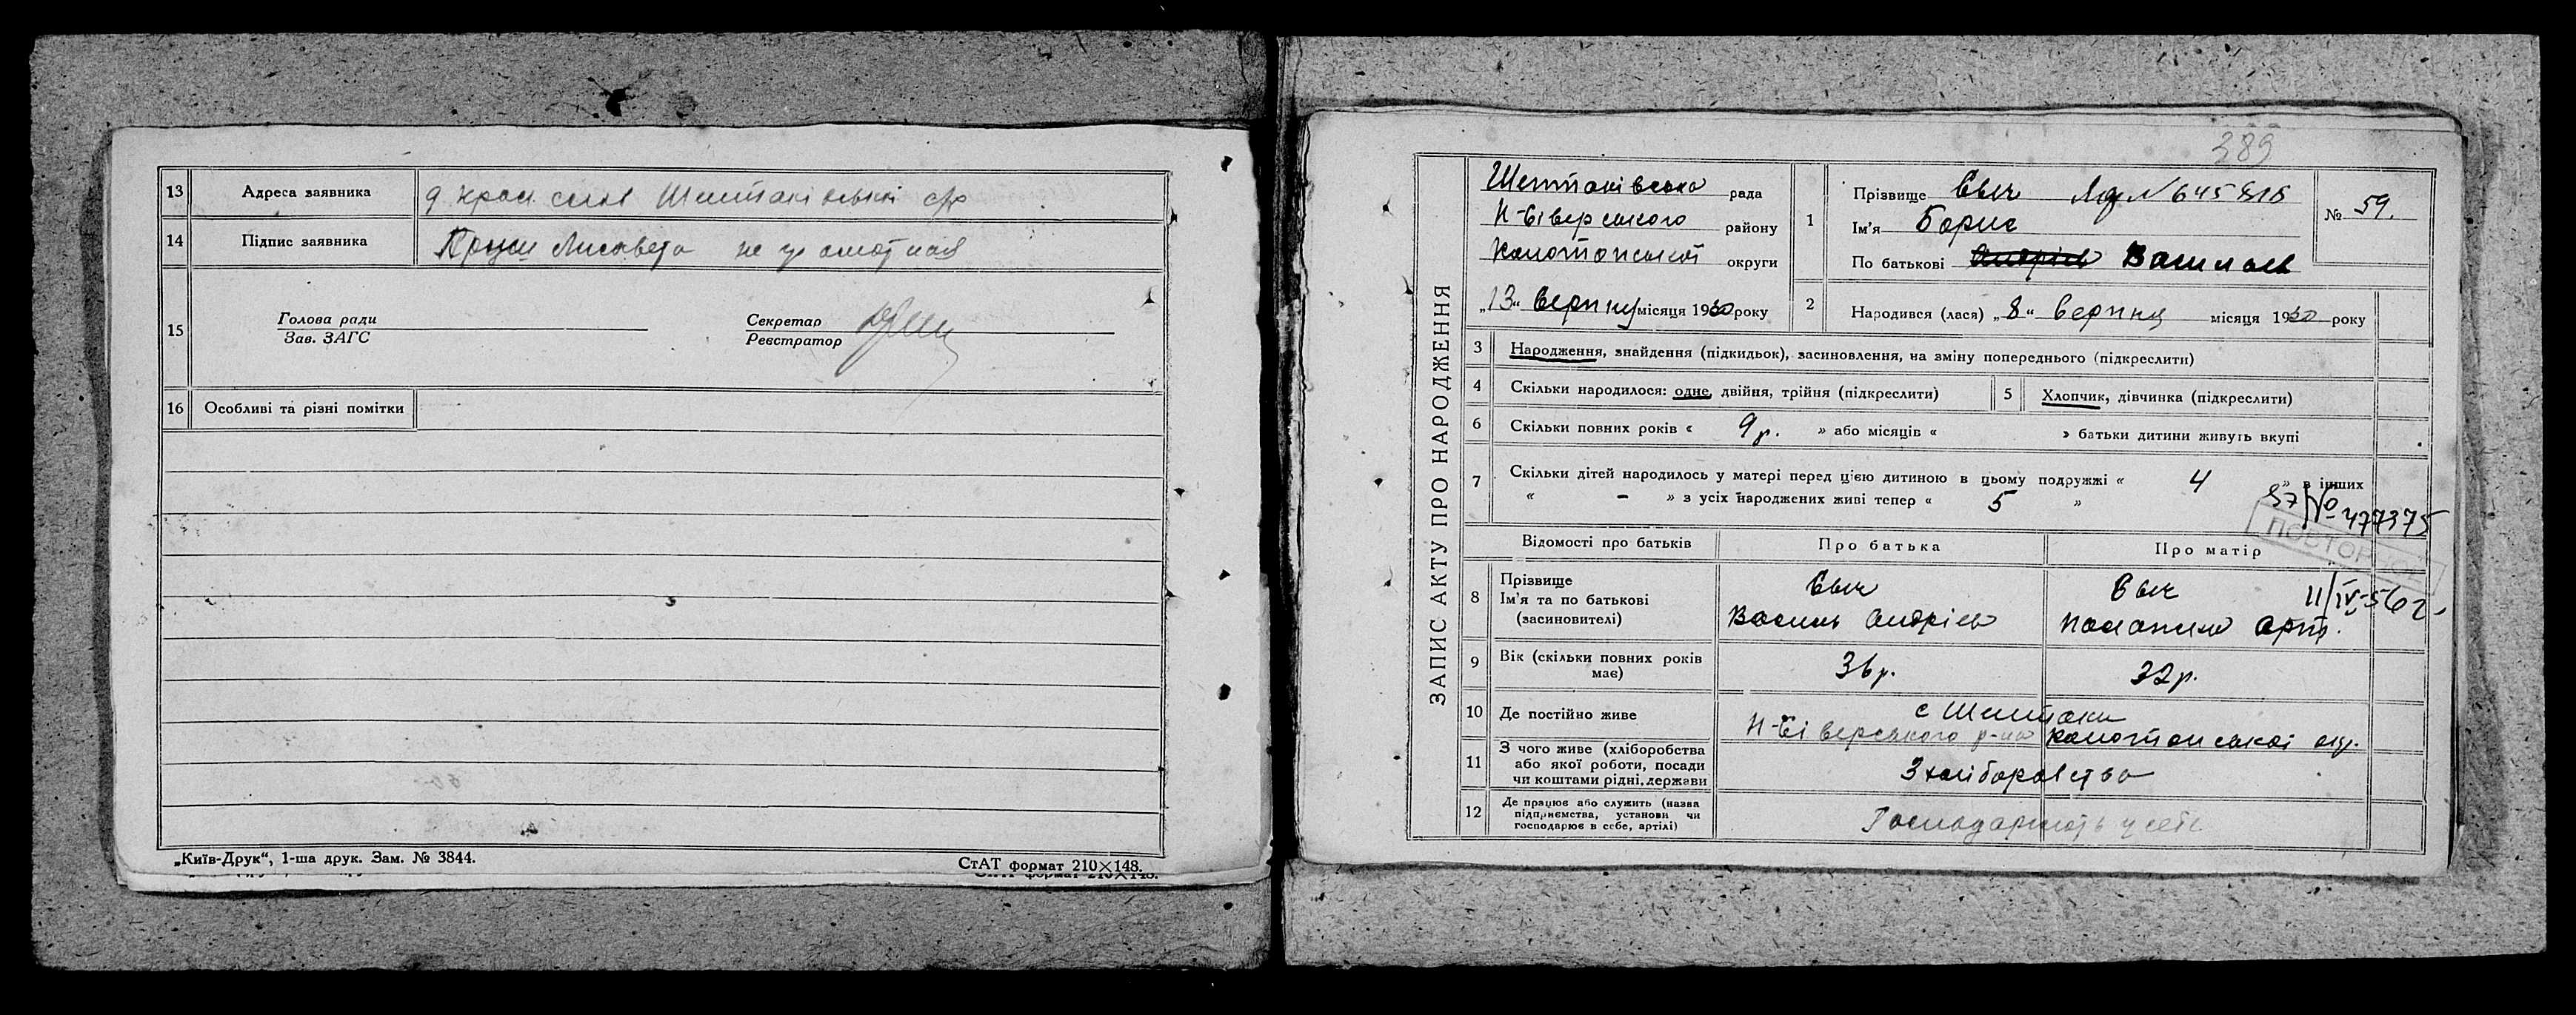 13 Адреса заявника
14 Підпис заявника Лисавета
15 Голова ради
Зав. ЗАГС
Секретар
Реєстратор
16 Особливі та різні помітки
„Київ-Друк“, 1-ша друк. Зам. № 3844.
СтАТ формат 210×148.
389
ЗАПИС АКТУ ПРО НАРОДЖЕННЯ
Шептаківська рада
Н-Сіверського району
Конотопської округи
„13“ верпня місяця 1930 року
1 Прізвище
Ім’я Борис
По батькові Васильов
№ 59.
2 Народився (лася) „8“ верпня місяця 1930 року
3 Народження, знайдення (підкидьок), засиновлення, на зміну попереднього (підкреслити)
4 Скільки народилося: одне, двійня, трійня (підкреслити)
5 Хлопчик, дівчинка (підкреслити)
6 Скільки повних років « 9 р. » або місяців « » батьки дитини живуть вкупі
7 Скільки дітей народилось у матері перед цією дитиною в цьому подружжі « 4 » в інших
« – » з усіх народжених живі тепер « 5 »
№ 477375
ПОВТОРНОЕ
Відомості про батьків
Про батька
Про матір
11/IV-56 г.
8 Прізвище
Ім’я та по батькові
(засиновителі)
Василь Андрієв
9 Вік (скільки повних років має)
36 р.
32 р.
10 Де постійно живе
с Шептаки
Н-Сіверського р-на Конотопської окр.
11 З чого живе (хліборобства
або якої роботи, посади
чи коштами рідні, держави
З хліборобства
12 Де працює або служить (назва
підприємства, установи чи
господарює в себе, артілі)
Господарюють у себе